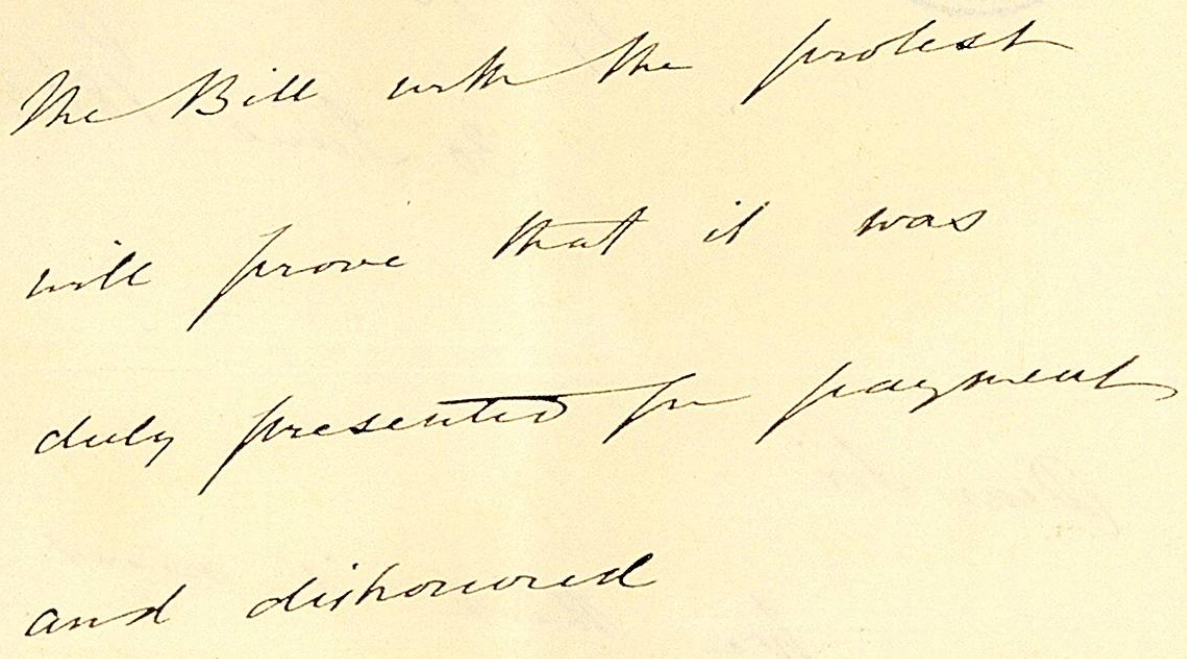 The Bill with the protest
will prove that it was
duly presented for payment
and dishonoured